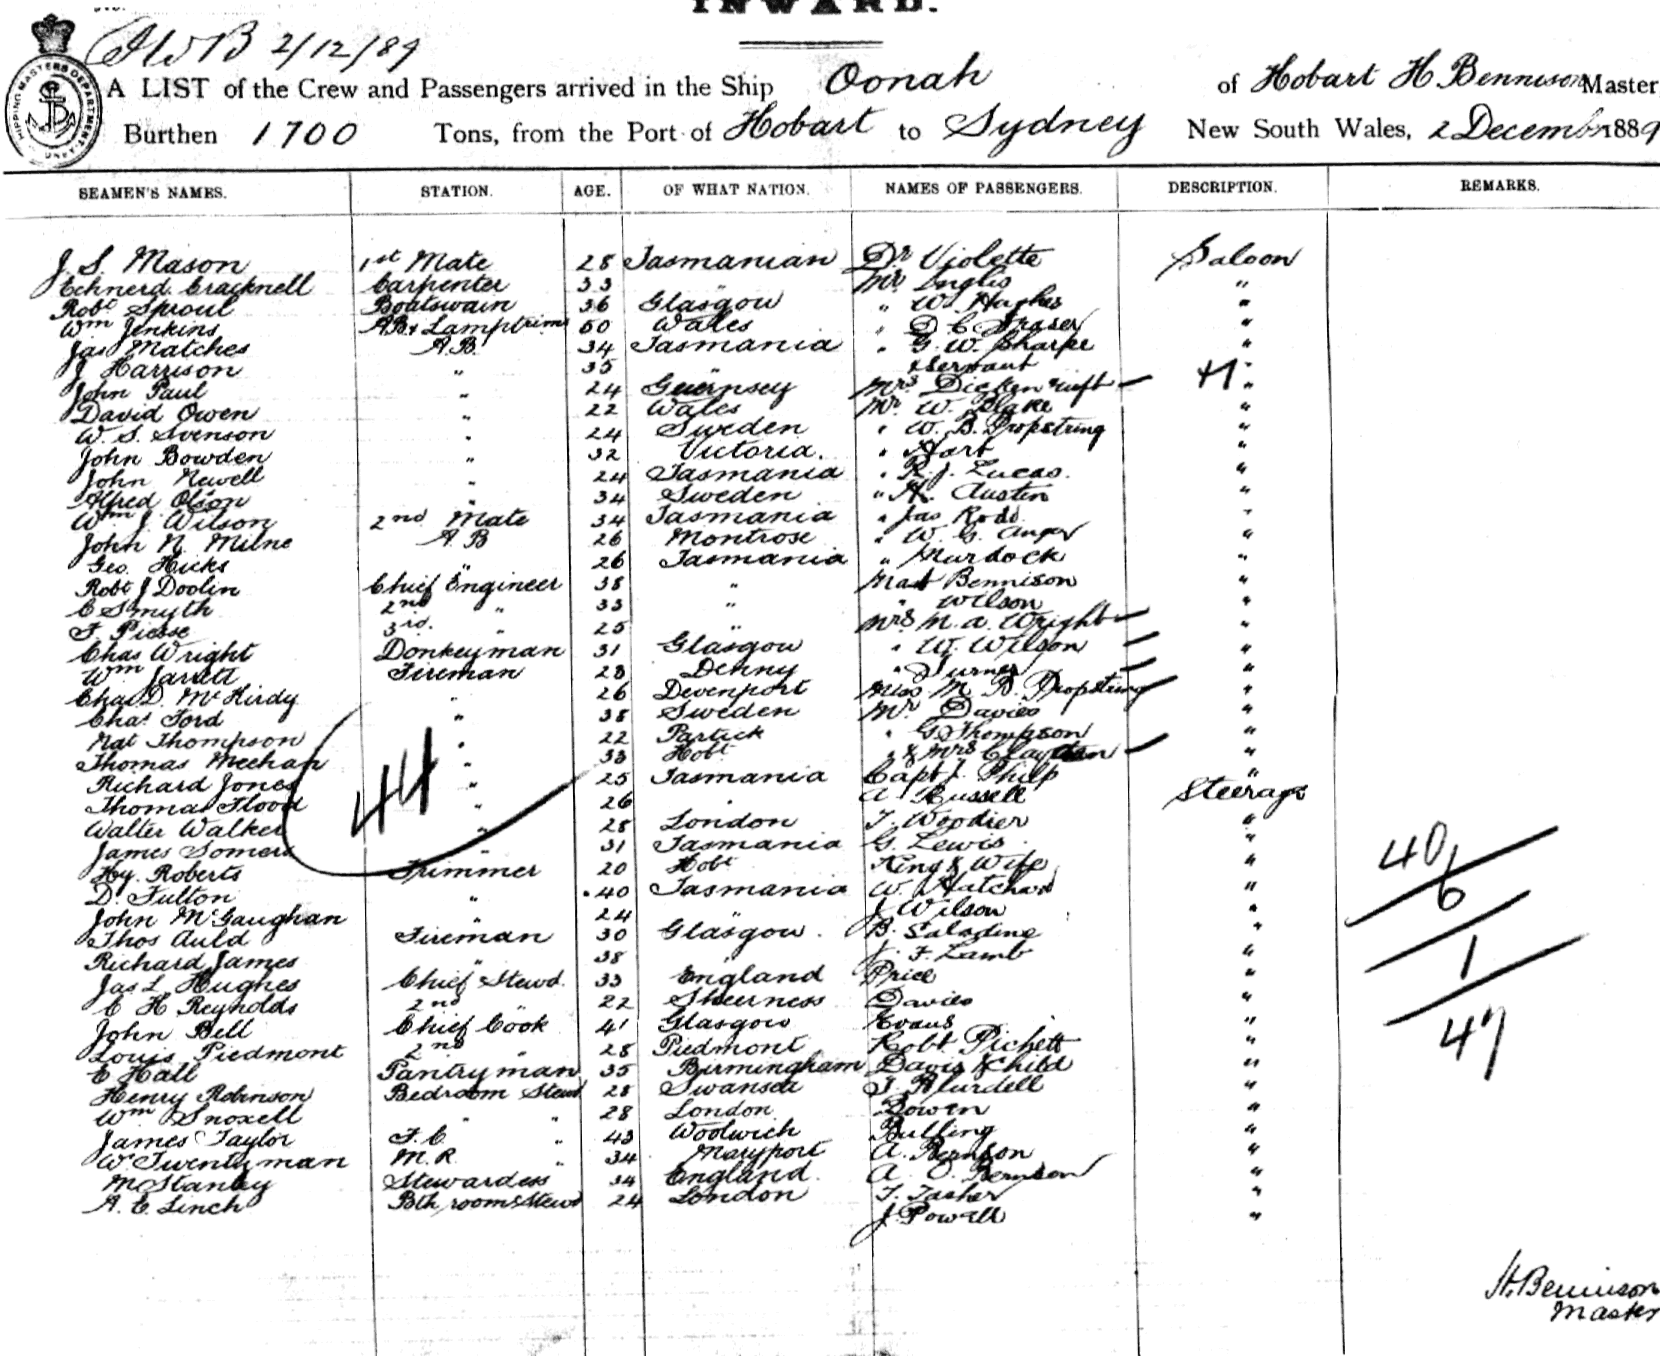 INWARD.
HWB 2/12/89
A LIST of the Crew and Passengers arrived in the Ship Oonah of Hobart H Bennison Master,
Burthen 1700 Tons, from the Port of Hobart to Sydney New South Wales, 2 December 1889
SEAMEN'S NAMES. STATION. AGE. OF WHAT NATION. NAMES OF PASSENGERS. DESCRIPTION. REMARKS.
J. S. Mason 1st Mate 28 Tasmanian Dr Violette Saloon
Cracknell Carpenter 33 " Mr Inglis "
Robt Sproul Boatswain 36 Glasgow " W. Hughes "
Wm Jenkins AB & Lamptrim 50 Wales " D C Fraser "
Jas Matches A.B. 34 Tasmania " G. W. Sharpe "
J Harrison " 35 " & Servant "
John Paul " 24 Guernsey Mrs +1 "
David Owen " 22 Wales Mr. W. Blake "
W. S. Svenson " 24 Sweden " W. B. Propsting "
John Bowden " 32 Victoria. " Hart "
John Newell " 24 Tasmania " R. J. Lucas. "
Alfred Olson " 34 Sweden " A. Austin "
Wm J. Wilson 2nd Mate 34 Tasmania " Jas Rodd "
John N. Milne A. B 26 Montrose " W. G. "
Geo. Hicks " 26 Tasmania " Murdock "
Robt J Doolin Chief Engineer 38 " Mast Bennison "
C Smyth 2nd " 33 " " Wilson "
F. Piesse 3rd. " 25 " Mrs M. A. Wright "
Chas Wright Donkeyman 31 Glasgow " W. Wilson "
Wm Jarrett Fireman 28 Denny " Turner "
Chas D. McKirdy " 26 Devenport Miss M. B. Propsting "
Chas Ford " 38 Sweden Mr Davies "
Nat Thompson " 22 Partick " G Thompson "
Thomas Meehan " 33 Hobt " & Mrs "
Richard Jones " 25 Tasmania Capt J. Philp "
Thomas Flood " 26 " A. Russell Steerage
Walter Walker " 28 London T. Woodier "
James Somers " 31 Tasmania G. Lewis "
Hy. Roberts Trimmer 20 Hobt King & Wife "
D. Fulton " 40 Tasmania W. "
John McGaughan " 24 " J Wilson "
Thos Auld Fireman 30 Glasgow. B. Saladine "
Richard James " 38 J. F. Lamb "
Jas L Hughes Chief Stewd. 33 England Price "
C H Reynolds 2nd " 22 Sheerness Davies "
John Bell Chief Cook 41 Glasgow Evans "
Louis Piedmont 2nd " 28 Piedmont Robt Pickett "
E Hall Pantryman 35 Birmingham Davis & Child "
Henry Robinson Bedroom Stewd 28 Swansea J. Blurdell "
Wm Snoxell " " 28 London Bowen "
James Taylor F. C. " 43 Woolwich Bulling "
W. Twentyman M. R. " 34 Maryport A. "
M Stanley Stewardess 34 England. A. C. "
A. E. Linch Bth room Stewd 24 London T. Tasher "
J. Powell "
44
40
6
1
47
H. Bennison
Master